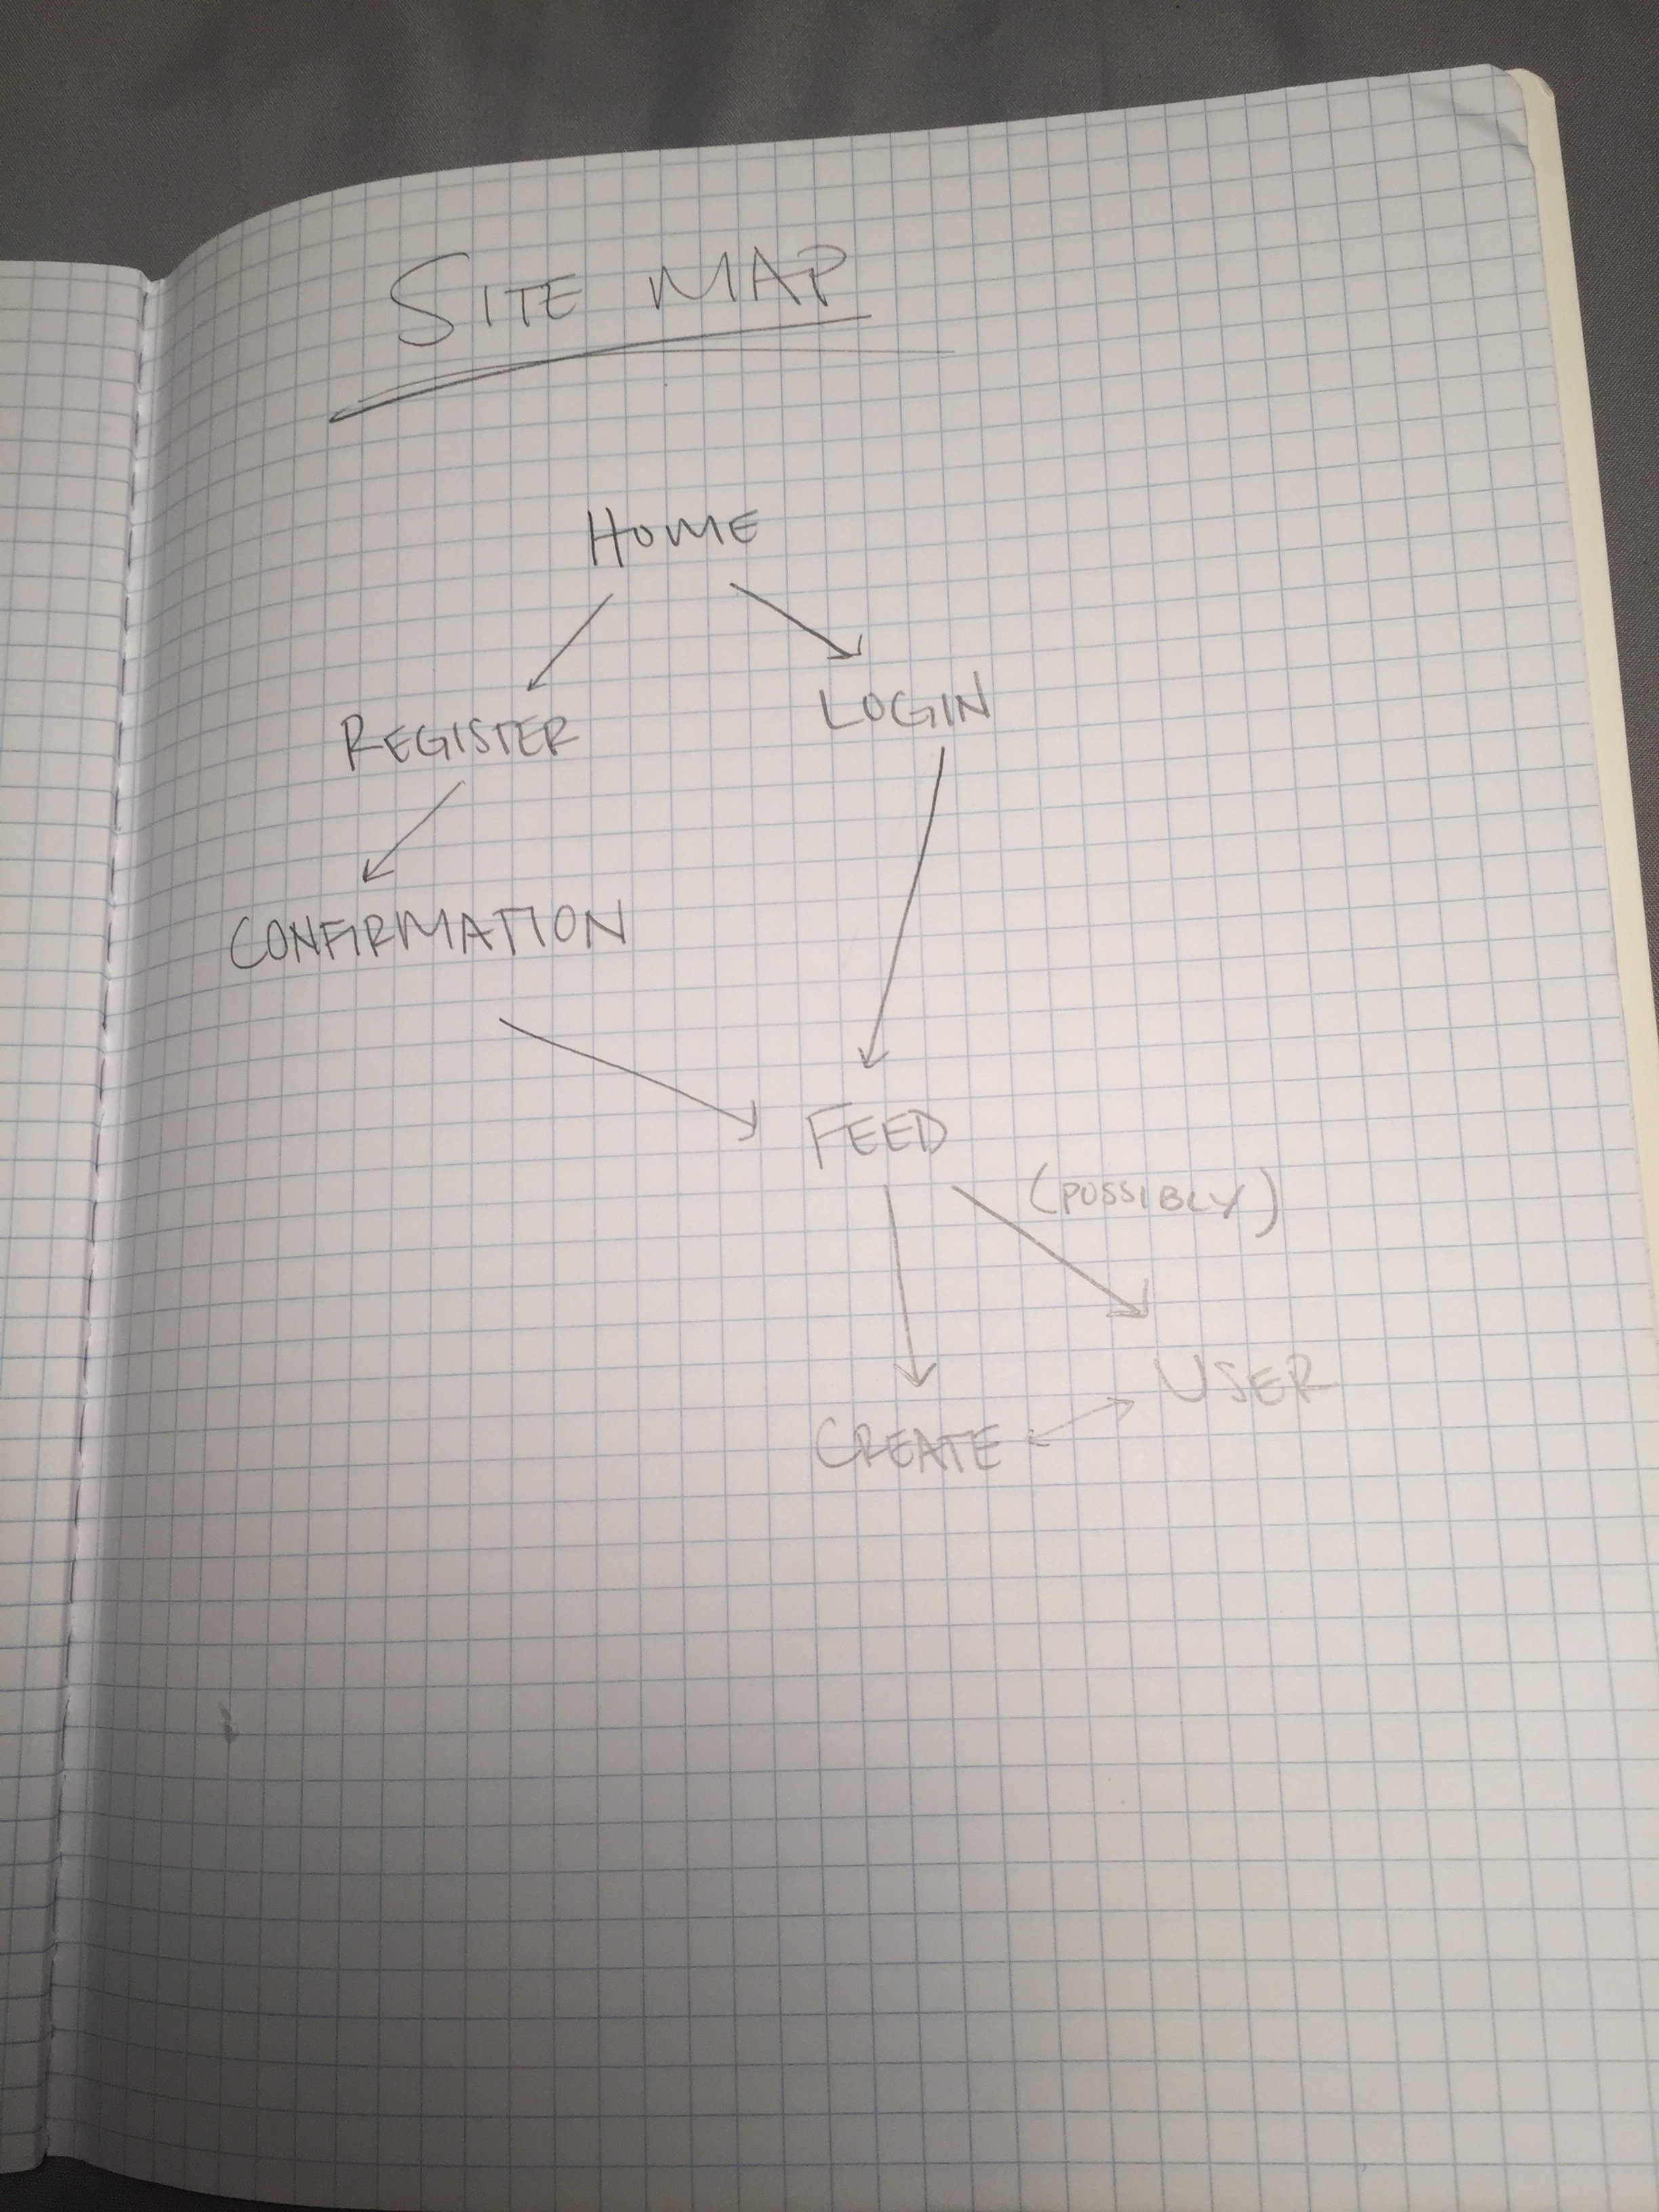 SITE MAP
HOME
REGISTER
LOGIN
CONFIRMATION
FEED
(POSSIBLY)
USER
CREATE